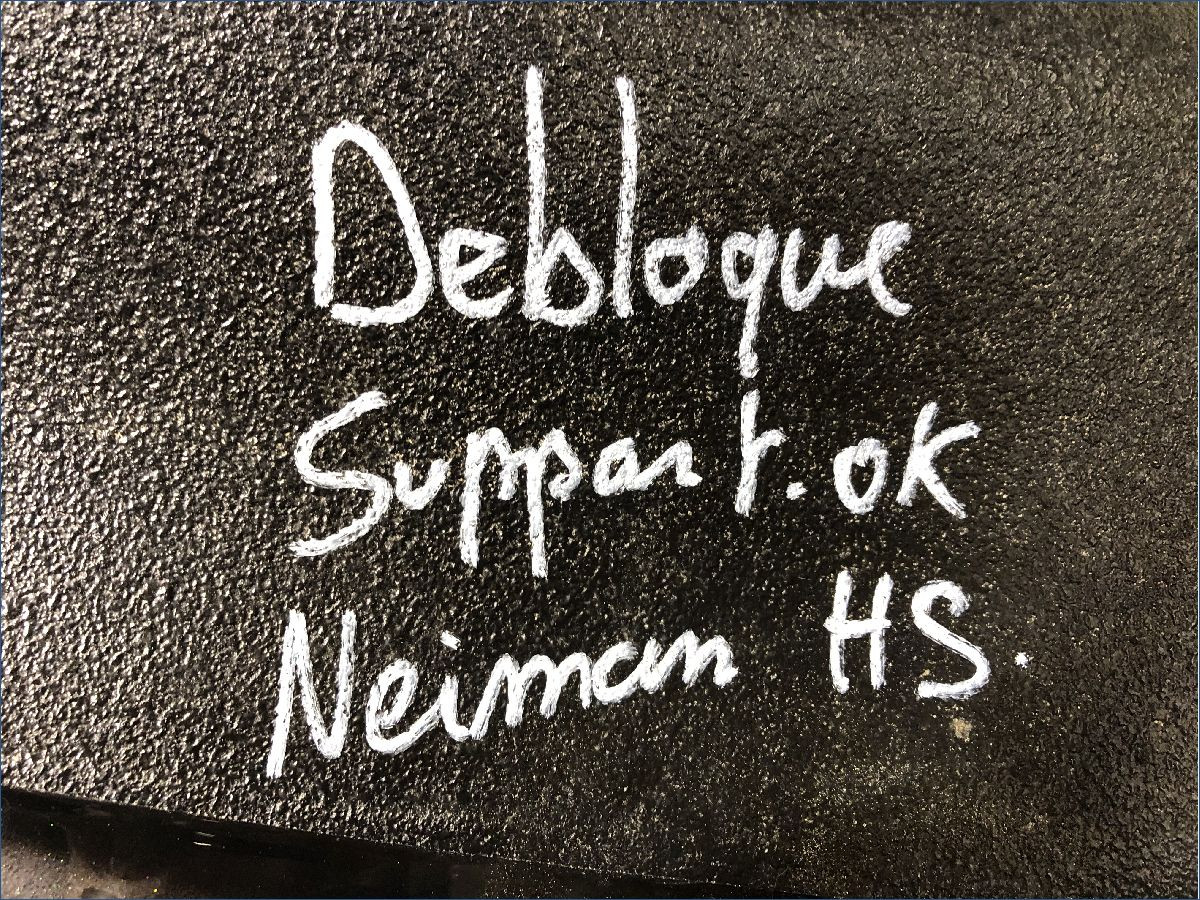 Debloque
Support. ok
Neiman HS.